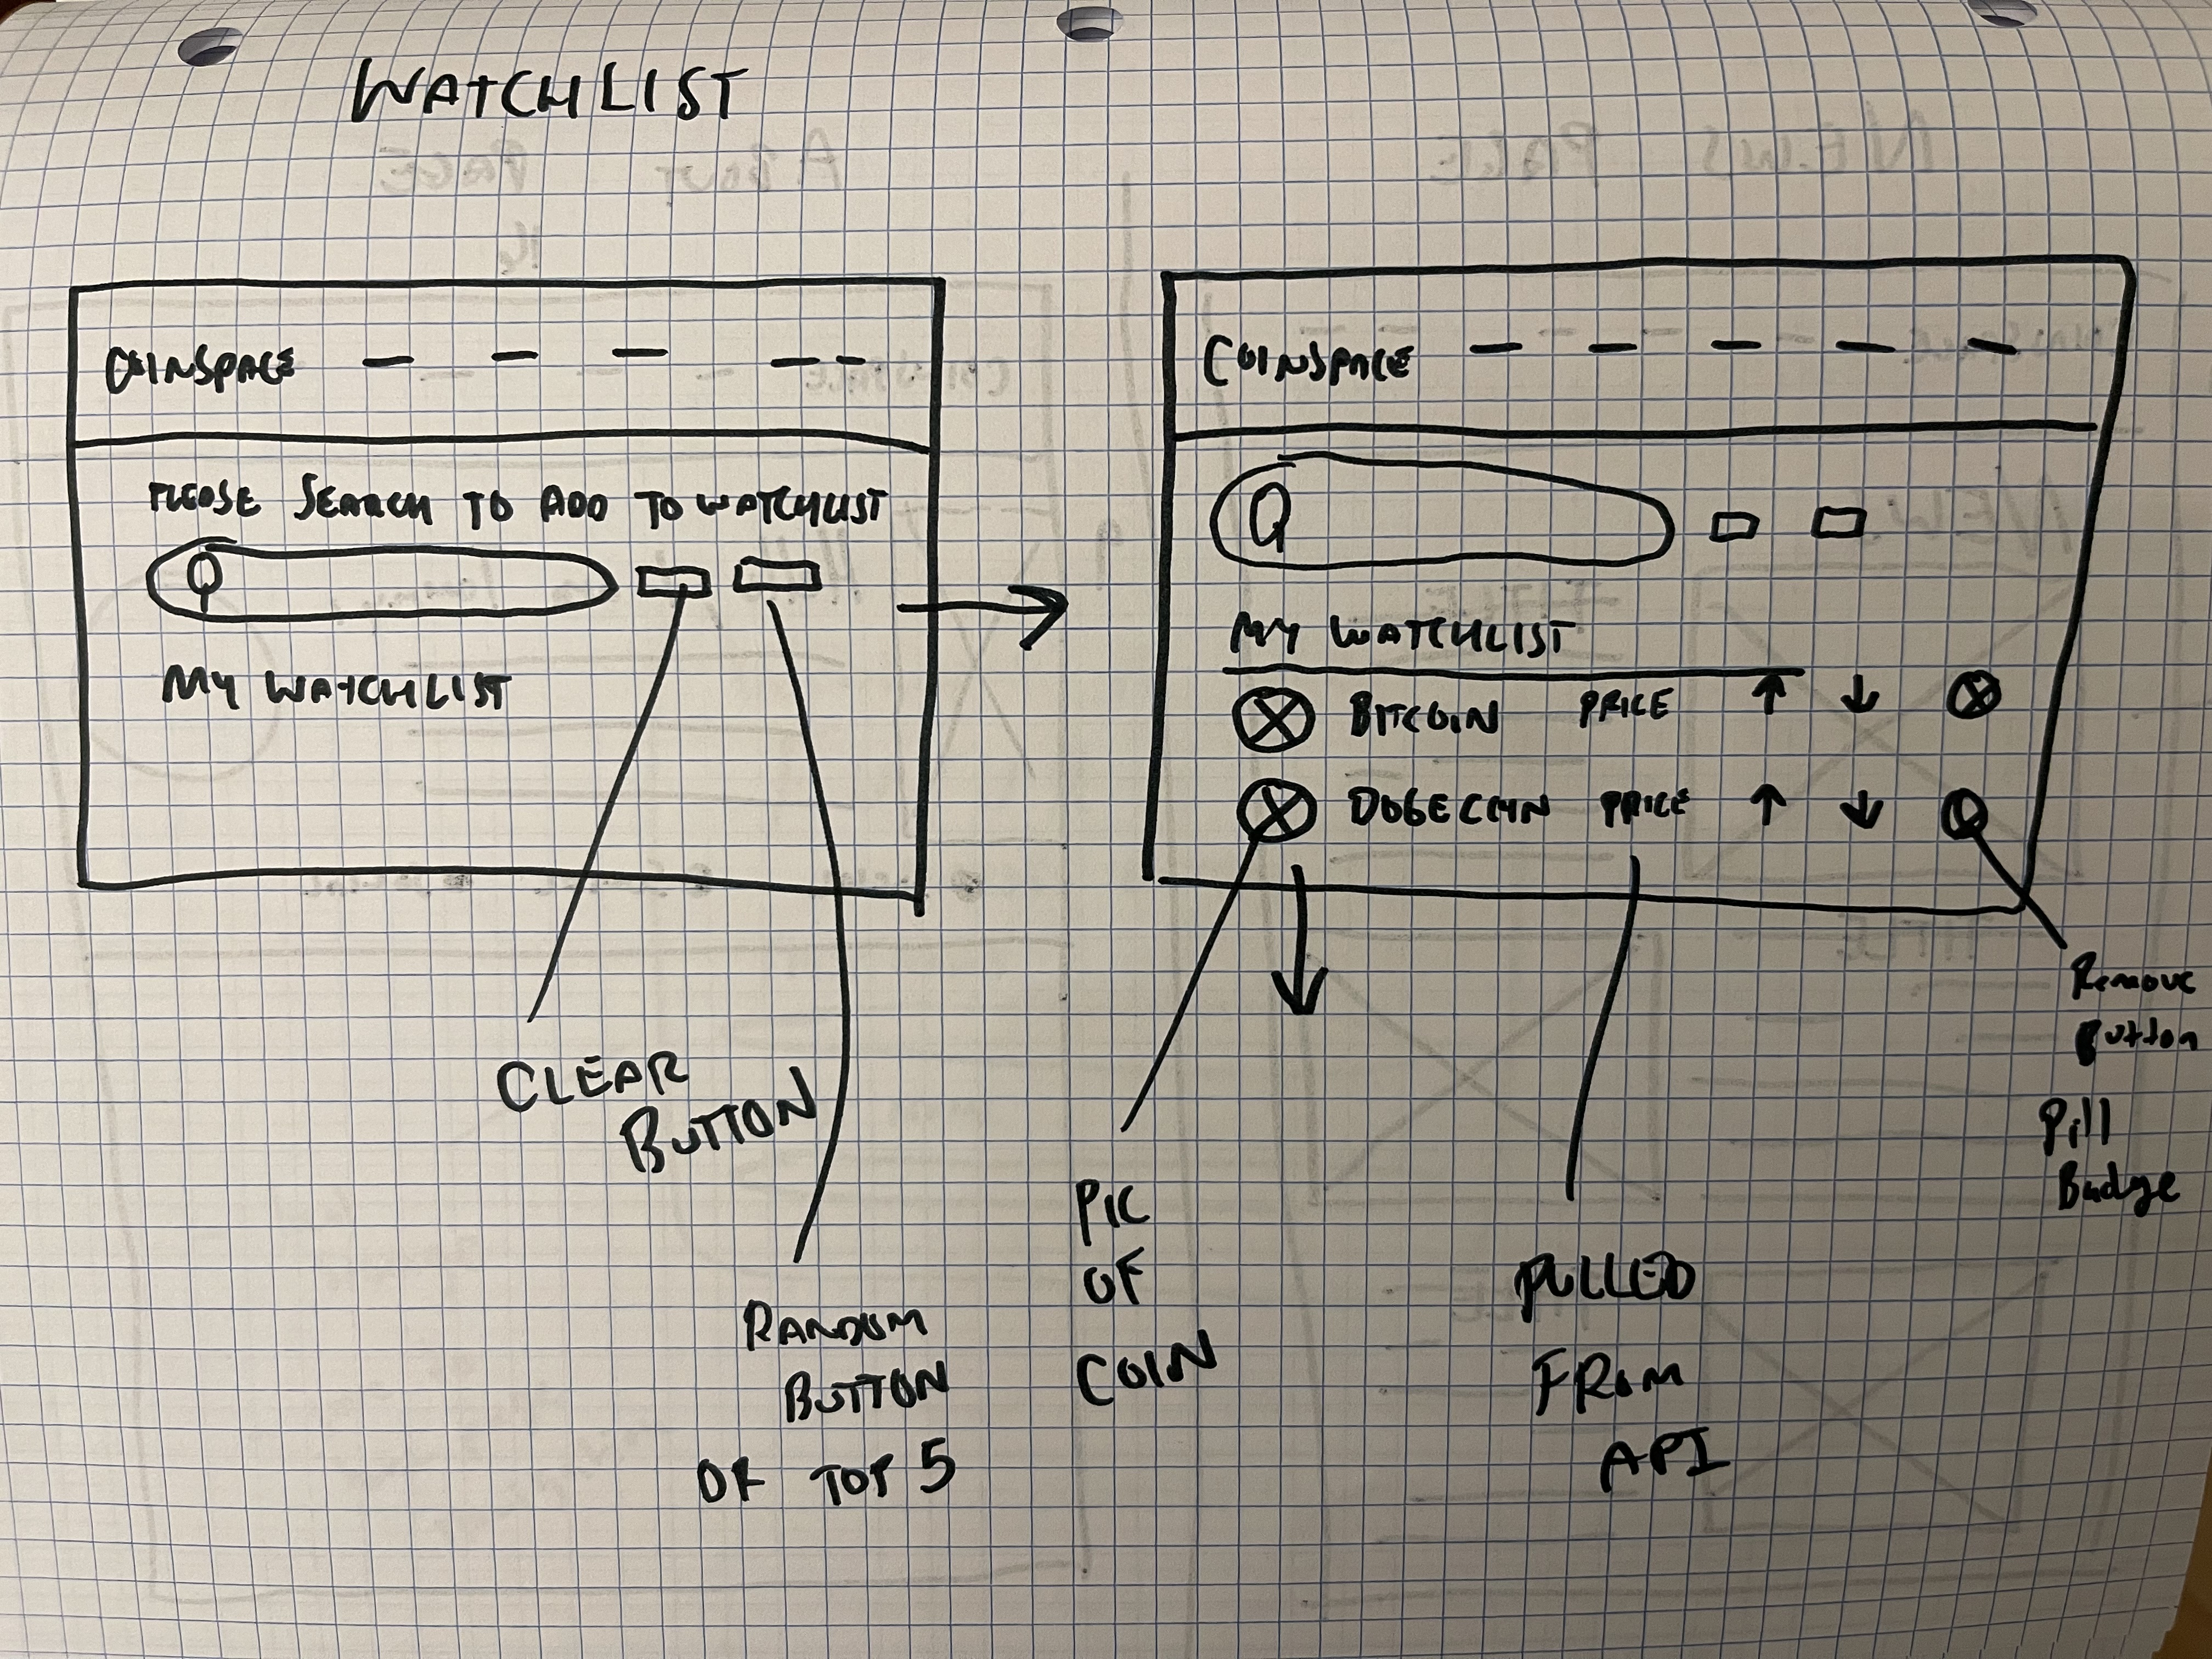 WATCHLIST
COINSPACE
PLEASE SEARCH TO ADD TO WATCHLIST
MY WATCHLIST
CLEAR
BUTTON
RANDOM
BUTTON
OR TOP 5
COINSPACE
MY WATCHLIST
BITCOIN PRICE ↑ ↓
DOGECOIN PRICE ↑ ↓
PIC
OF
COIN
PULLED
FROM
API
Remove
Button
Pill
Badge
NEWS PAGE
ABOUT PAGE